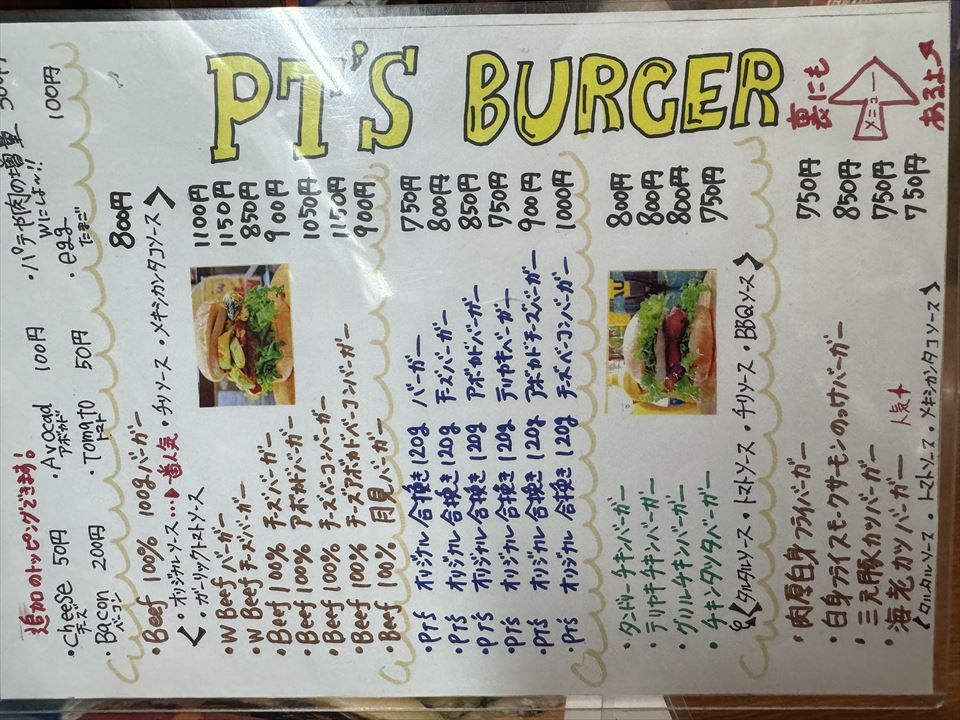 PT'S BURGER
追加のトッピングできます。
・Cheese 50円 ・Avocad 100円 ・パテや肉の増量
チーズ アボカド Wにしよ〜!!
・Bacon 200円 ・Tomato 50円 ・egg 100円
ベーコン トマト たまご
・Beef 100% 100gバーガー 800円
<・オリジナルソース…▶一番人気・チリソース・メキシカンタコソース>
・ガーリックトマトソース
・W Beef バーガー 1100円
・W Beef チーズバーガー 1150円
・Beef 100% チーズバーガー 850円
・Beef 100% アボカドバーガー 900円
・Beef 100% チーズベーコンバーガー 1050円
・Beef 100% チーズアボカドベーコンバーガー 1150円
・Beef 100% 月見バーガー 900円
・PT's オリジナル合挽き120g バーガー 750円
・PT's オリジナル合挽き120g チーズバーガー 800円
・PT's オリジナル合挽き120g アボカドバーガー 850円
・PT's オリジナル合挽き120g テリヤキバーガー 750円
・PT's オリジナル合挽き120g アボカドチーズバーガー 900円
・PT's オリジナル合挽き120g チーズベーコンバーガー 1000円
・タンドリーチキンバーガー 800円
・テリヤキチキンバーガー 800円
・グリルチキンバーガー 800円
・チキンタツタバーガー 750円
<タルタルソース・トマトソース・チリソース・BBQソース>
・肉厚白身フライバーガー 750円
・白身フライスモークサーモンのっけバーガー 850円
・三元豚カツバーガー 750円
・海老カツバーガー 人気↑ 750円
<タルタルソース・トマトソース・メキシカンタコソース>
裏にも
メニュー
あるよ〜